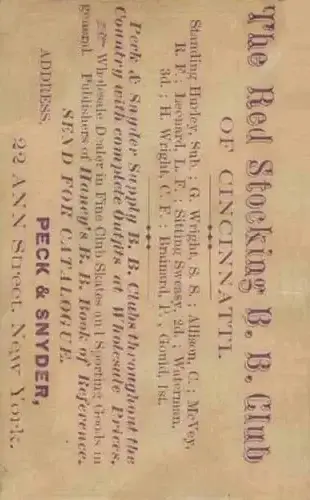 The Red Stocking B. B. Club
OF CINCINNATI.
Standing Hurley, Sub.; G. Wright, S. S.; Allison, C.; McVey,
R. F.; Leonard, L. F.; Sitting Sweasy, 2d.; Waterman,
3d.; H. Wright, C. F.; Brainard, P., Gould, 1st.
Peck & Snyder Supply B. B. Clubs throughout the
Country with complete Outfits at Wholesale Prices.
Wholesale Dealer in Fine Club Skates and Sporting Goods in
general. Publishers of Haney's B. B. Book of Reference.
SEND FOR CATALOGUE.
ADDRESS,
PECK & SNYDER,
22 ANN Street, New York.